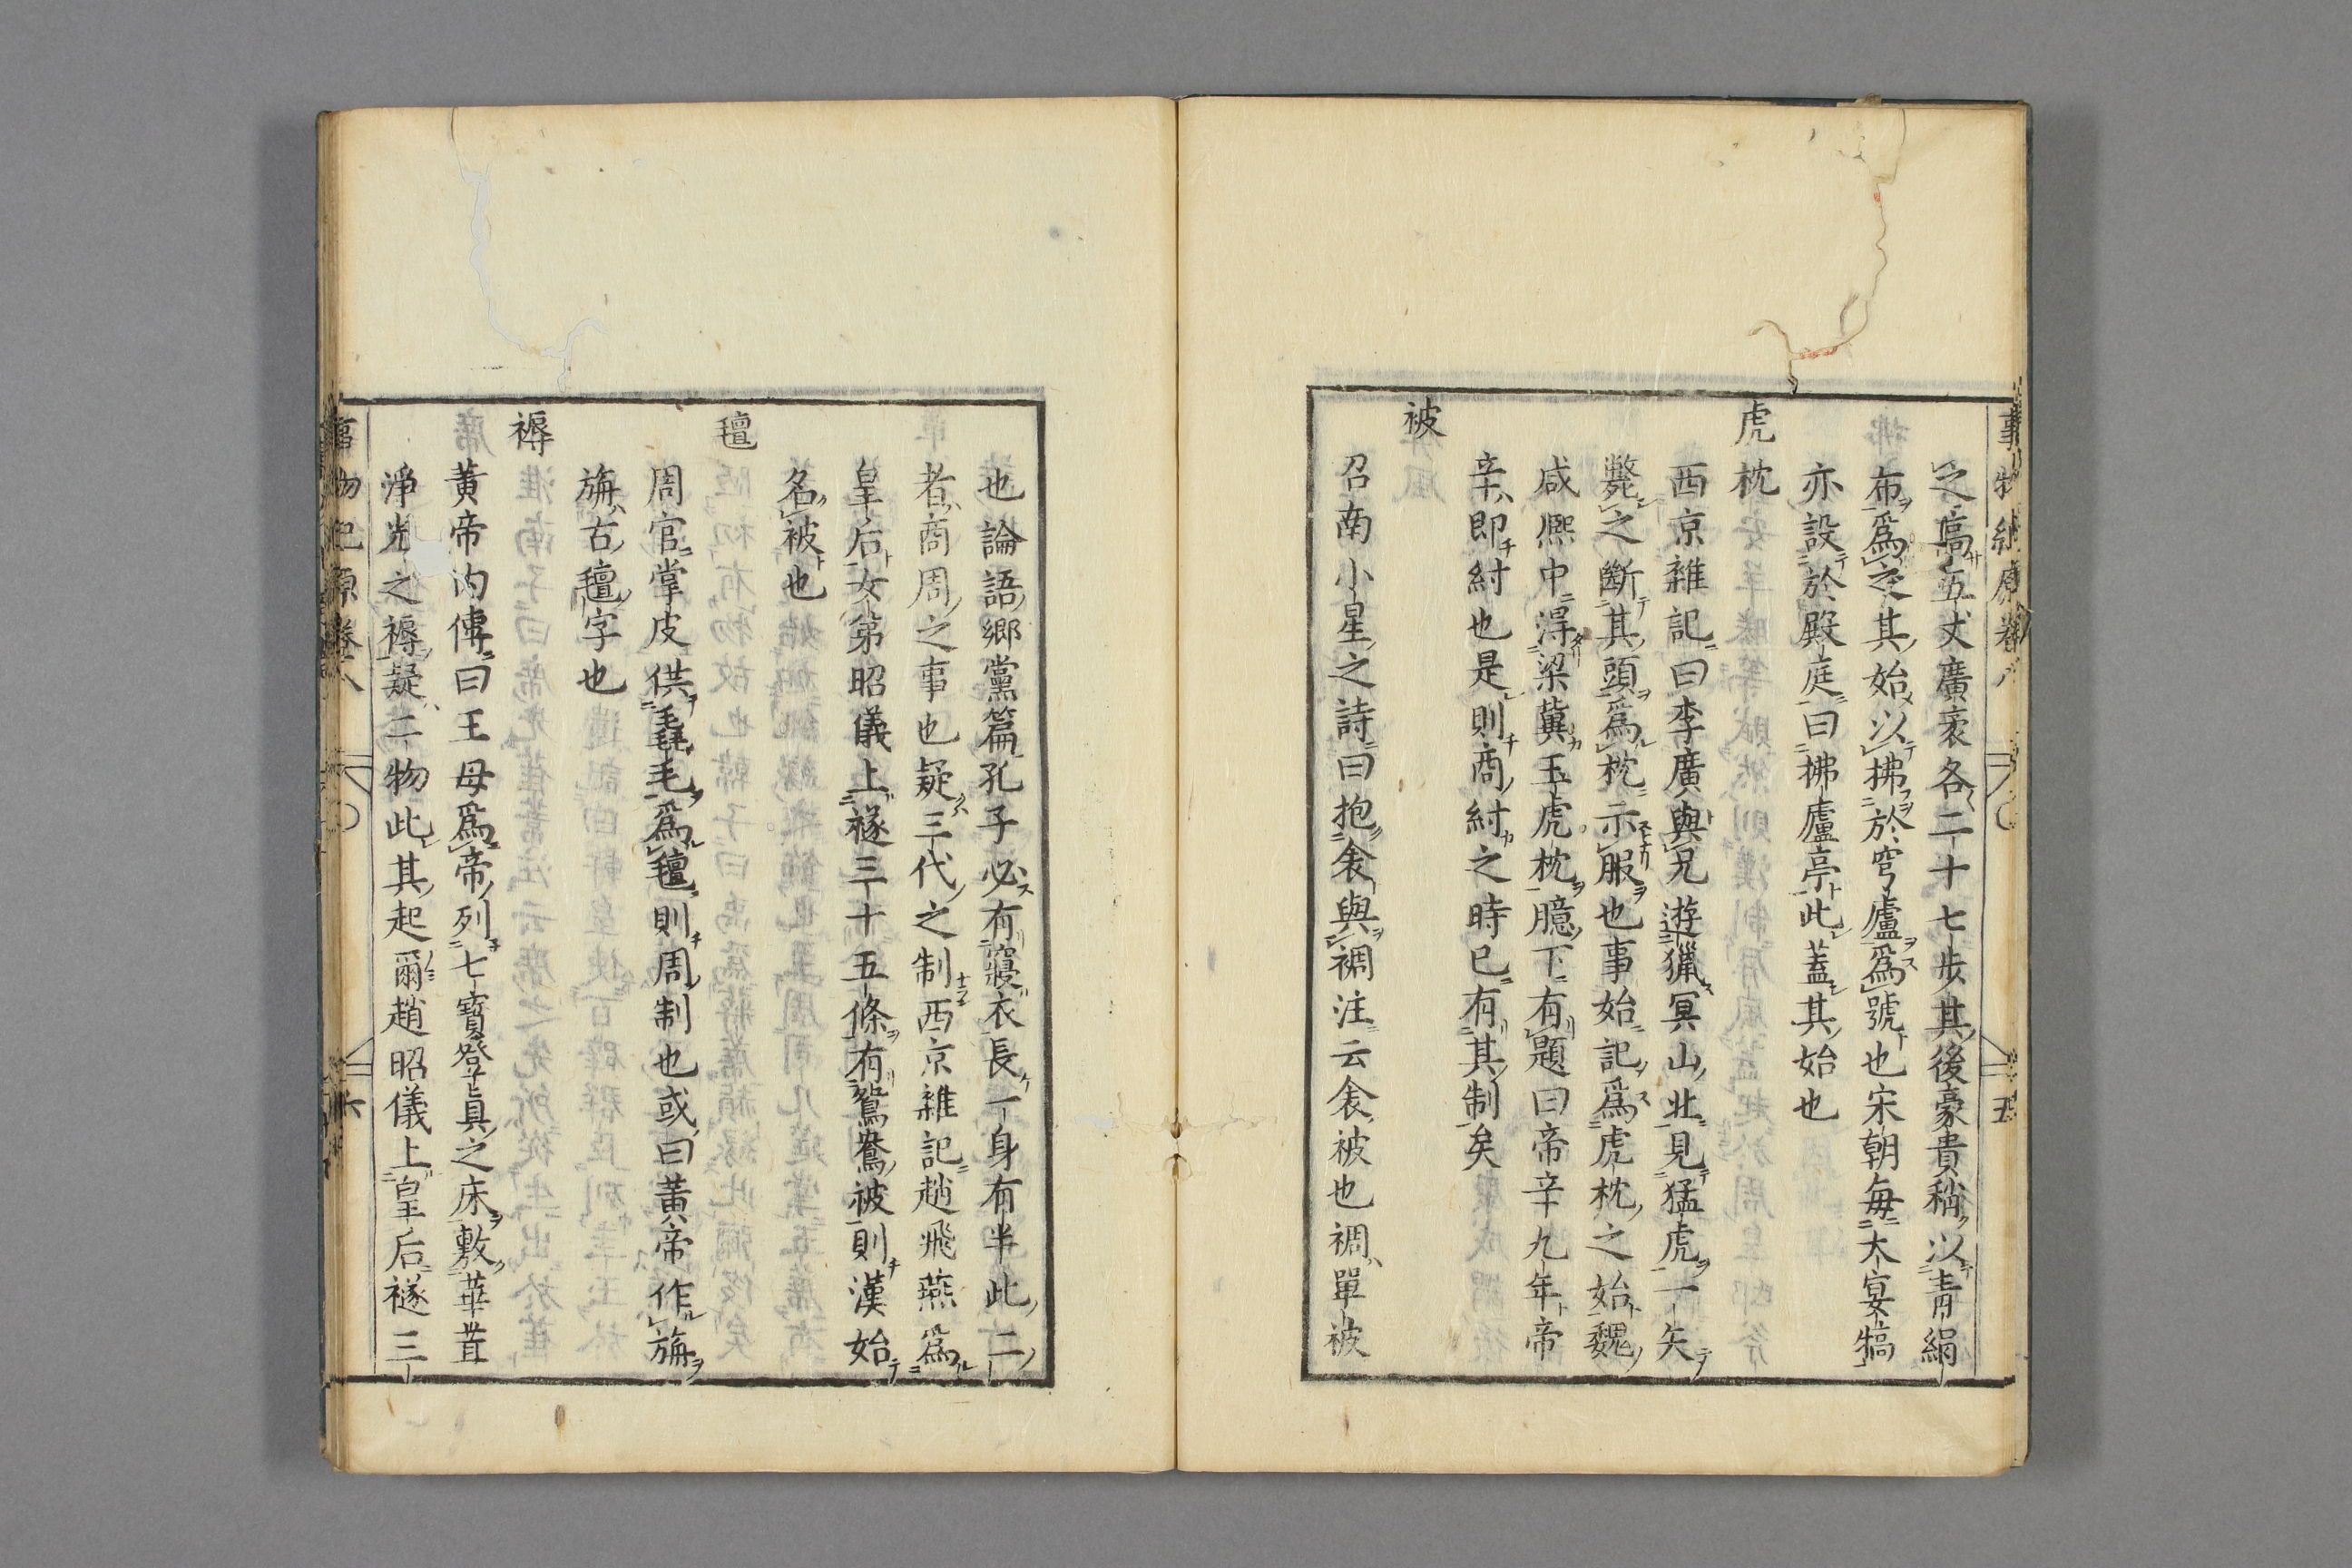 之高五丈廣袤各二十七步其後豪貴稍以青絹
布爲之其始以拂於穹廬爲號也宋朝毎大宴犒
亦設於殿庭曰拂廬亭此蓋其始也
虎枕
西京雜記曰李廣與兄遊獵冥山北見猛虎一矢
斃之斷其頭爲枕示服也事始記爲虎枕之始魏
咸熈中得梁冀玉虎枕臆下有題曰帝辛九年帝
辛即紂也是則商紂之時已有其制矣
被
召南小星之詩曰抱衾與裯注云衾被也裯單被
也論語郷黨篇孔子必有寢衣長一身有半此二
者商周之事也疑三代之制西京雜記趙飛燕爲
皇后女弟昭儀上襚三十五條有鴛鴦被則漢始
名被也
氊
周官掌皮供毳毛爲氊則周制也或曰黃帝作旃
旃古氊字也
褥
黃帝内傳曰王母爲帝列七寶登眞之床敷華茸
淨光之褥疑二物此其起爾趙昭儀上皇后襚三
事物紀原卷八
五
六